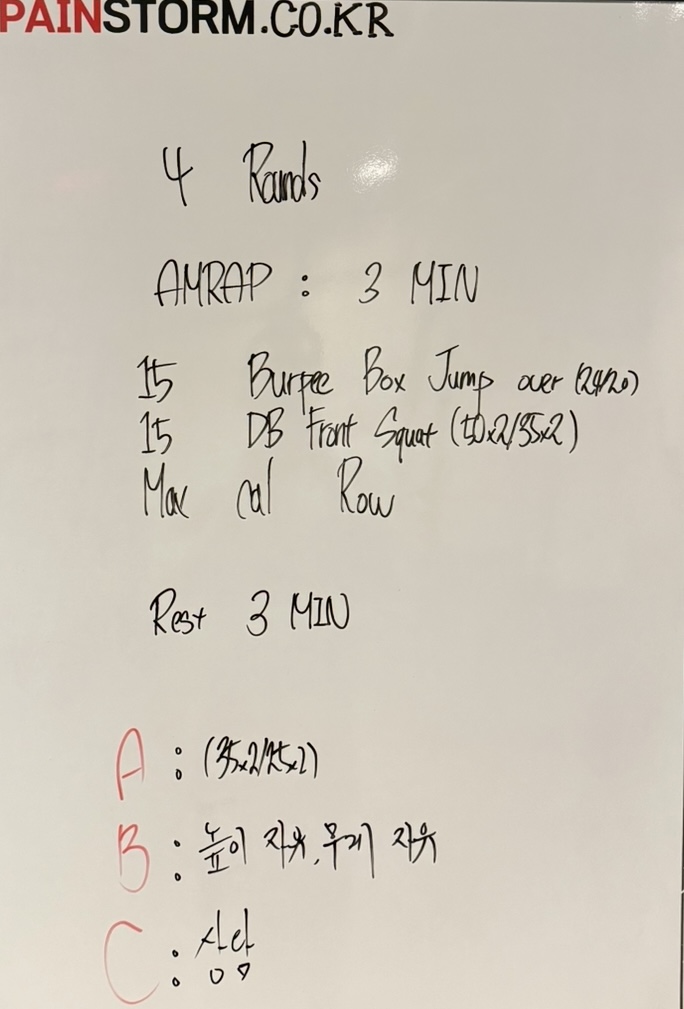 PAINSTORM.CO.KR
4 Rounds
AMRAP : 3 MIN
15 Burpee Box Jump over (24/20)
15 DB Front Squat (50x2/35x2)
Max cal Row
Rest 3 MIN
A : (35x2/25x2)
B : 높이 자유, 무게 자유
C : 상담